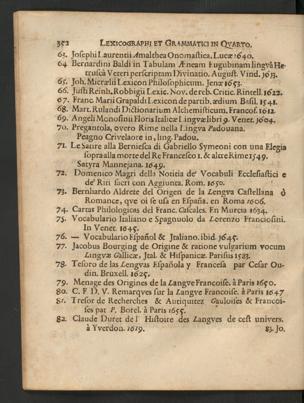 352 LEXICOGRAPHI ET GRAMMATICI IN QVARTO.
63. Josephi Laurentii Amalthea Onomastica. Lucæ 1640.
64. Bernardini Baldi in Tabulam Æneam Eugubinam linguâ He-
trusca Veteri perscriptam Divinatio. August. Vind. 1613.
65. Joh. Micrælii Lexicon Philosophicum. Jenæ 1653.
66. Justi Reinh. Robbigii Lexic. Nov. de reb. Critic. Rinteli. 1622.
67. Franc Marii Grapaldi Lexicon de partib. ædium Basil. 1541.
68. Mart. Rulandi Dictionarium Alchemisticum. Francof. 1612.
69. Angeli Monosinii Floris Italicæ Lingvæ libri 9. Venet. 1604.
70. Pregantola, overo Rime nella Lingva Padouana.
Peagno Crivelaore in, ling. Padou.
71. Le Satire alla Berniesca di Gabriello Symeoni con una Elegia
sopra alla morte del Re Francesco 1. & altre Rime 1549.
Satyra Mannejana. 1649.
72. Domenico Magri della Notitia de' Vocabuli Ecclesiastici e
de' Riti sacri con Aggiunta. Rom. 1650.
73. Bernhardo Aldrete del Origen de la Lengva Castellana ò
Romance, que oi se usa en España. en Roma 1606.
74. Cartas Philologicas del Franc. Cascales. En Murcia 1634.
75. Vocabulario Italiano e Spagnuolo da Lorenzo Franciosini.
In Venet. 1645.
76. — Vocabulario Español & Italiano. ibid. 1645.
77. Jacobus Bourging de Origine & ratione vulgarium vocum
Lingvæ Gallicæ, Ital. & Hispanicæ. Parisiis 1583.
78. Tesoro de las Lengvas Española y Francesa par Cesar Ou-
din. Bruxell. 1625.
79. Menage des Origines de la Langve Francoise. à Paris 1650.
80. C. F. D. V. Remarqves sur la Langve Francoise. à Paris 1647
81. Tresor de Recherches & Antiquitez Gauloises & Francoi-
ses par P. Borel. à Paris 1655.
82. Claude Duret de l' Histoire des Langves de cest univers.
à Yverdon. 1619. 83. Jo.